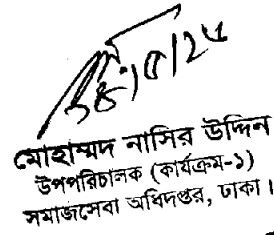 মোহাম্মদ নাসির উদ্দিন
উপপরিচালক (কার্যক্রম-১)
সমাজসেবা অধিদপ্তর, ঢাকা।